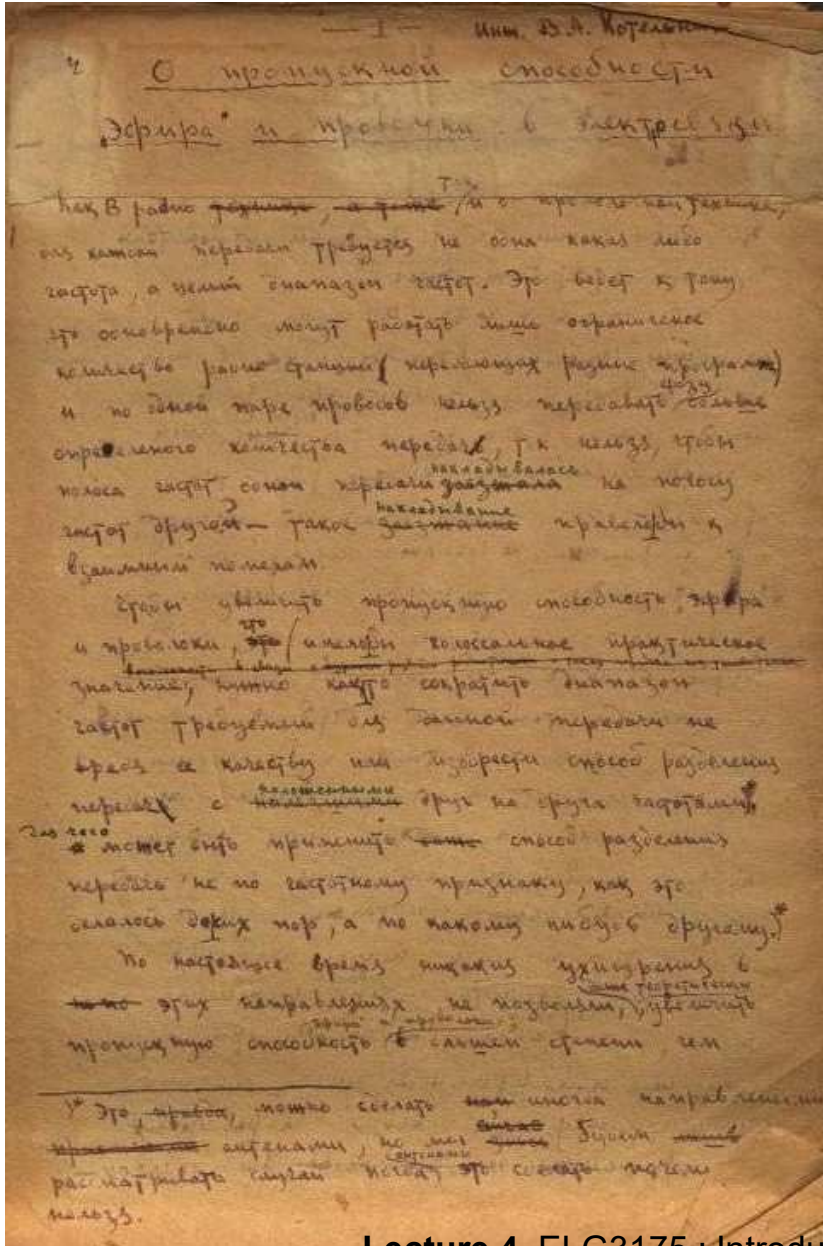 — I —
Инж. В.А. Котельн
О пропускной способности
„Эфира" и проволоки в электросвязи
Как в радио технике, а тоже и в технике,
для каждой передачи требуется не одна какая либо
частота, а целый диапазон частот. Это ведет к тому
что одновременно могут работать лишь ограниченое
количество радио станций (передающих разные програмы)
и по одной паре проводов нельзя передавать сразу больше
определеного количества передач, т к нельзя, чтобы
накладывалась
полоса частот одной передачи заезжала на полосу
накладывание
частот другой – такое заезжание к
взаимным помехам
Чтобы увеличить пропускную способность эфира
и проволоки, что это имело бы колоссальное практическое
значение, нужно как то сократить диапазон
частот требуемый для данной передачи не
вредя ее качеству или изобрести способ разделения
передач с наложенными друг на друга частотами
для чего
может быть применить способ разделения
передачь не по частотному признаку, как это
делалось до сих пор, а по какому нибудь другому.)*
По настоящее время никакия ухищрения в
даже теоретически
этих направлениях не позволяли, увеличить
эфира и проволоки
пропускную способность в степени чем
)* Это, правда, можно сделать иногда направлеными
антенами, но мы будем лишь
антенами
рассматривать случай когда это сделать
нельзя.
Lecture 4 ELG3175 : Introdu